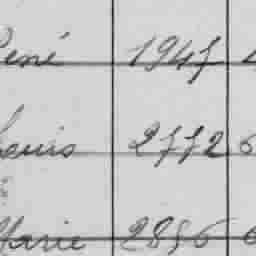 René 1947
Louis 2772 6
Marie 2856 6